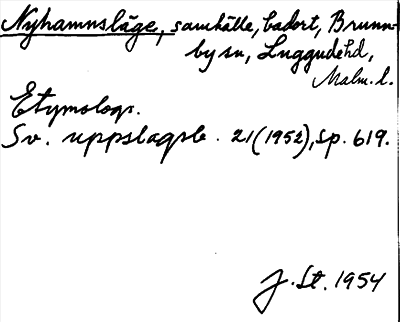 Nyhamnsläge, samhälle, badort, Brunn-
by sn, Luggudehd,
Malm. l.
Etymologi.
Sv. uppslagsb. 21(1952), sp. 619.
J. St. 1954